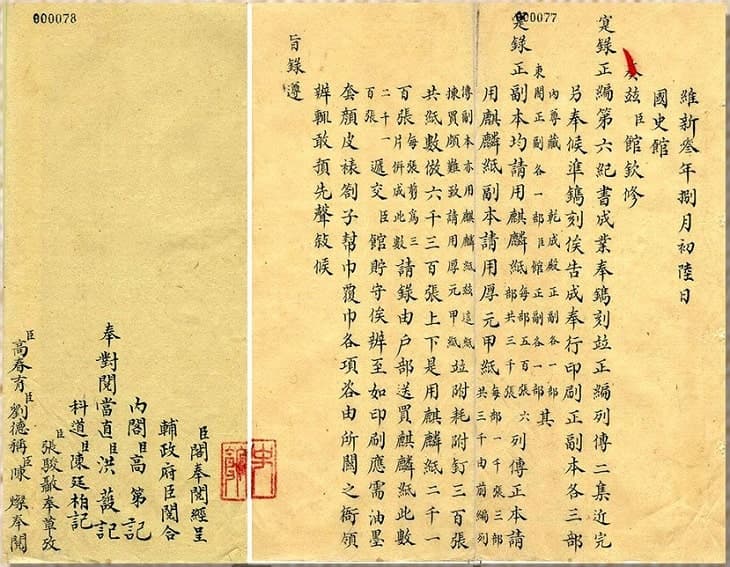 000077
維新叁年捌月初陸日
國史館
奏茲臣館欽修
寔錄正編第六紀書成業奉鐫刻竝正編列傳二集近完
另奉候準鐫刻俟告成奉行印刷正副本各三部
內尊藏乾成殿正副各一部
東閣正副各一部臣館正副各一部其
寔錄正副本均請用麒麟紙每部五百張六
部共三千張列傳正本請
用麒麟紙副本請用厚元甲紙每部一千張三部
共三千由前編列
傳副本亦用麒麟紙茲這紙
揀買頗難致請用厚元甲紙竝附耗附釘三百張
共紙數倣六千三百張上下是用麒麟紙二千一
百張每張剪為三
片併成此數請錄由戶部送買麒麟紙此數
二千一
百張遞交臣館貯守俟辦至如印刷應需油墨
套顏皮裱劄子幫巾覆巾各項咨由所關之衙領
辦輒敢預先聲敍候
旨錄遵
000078
臣閣奉閱經呈
輔政府臣閱合
內閣臣高第記
奉對閱當直臣洪蕟記
科道臣陳廷柏記
臣張駿奉草攷
臣高春育臣劉德稱臣陳燦奉閱